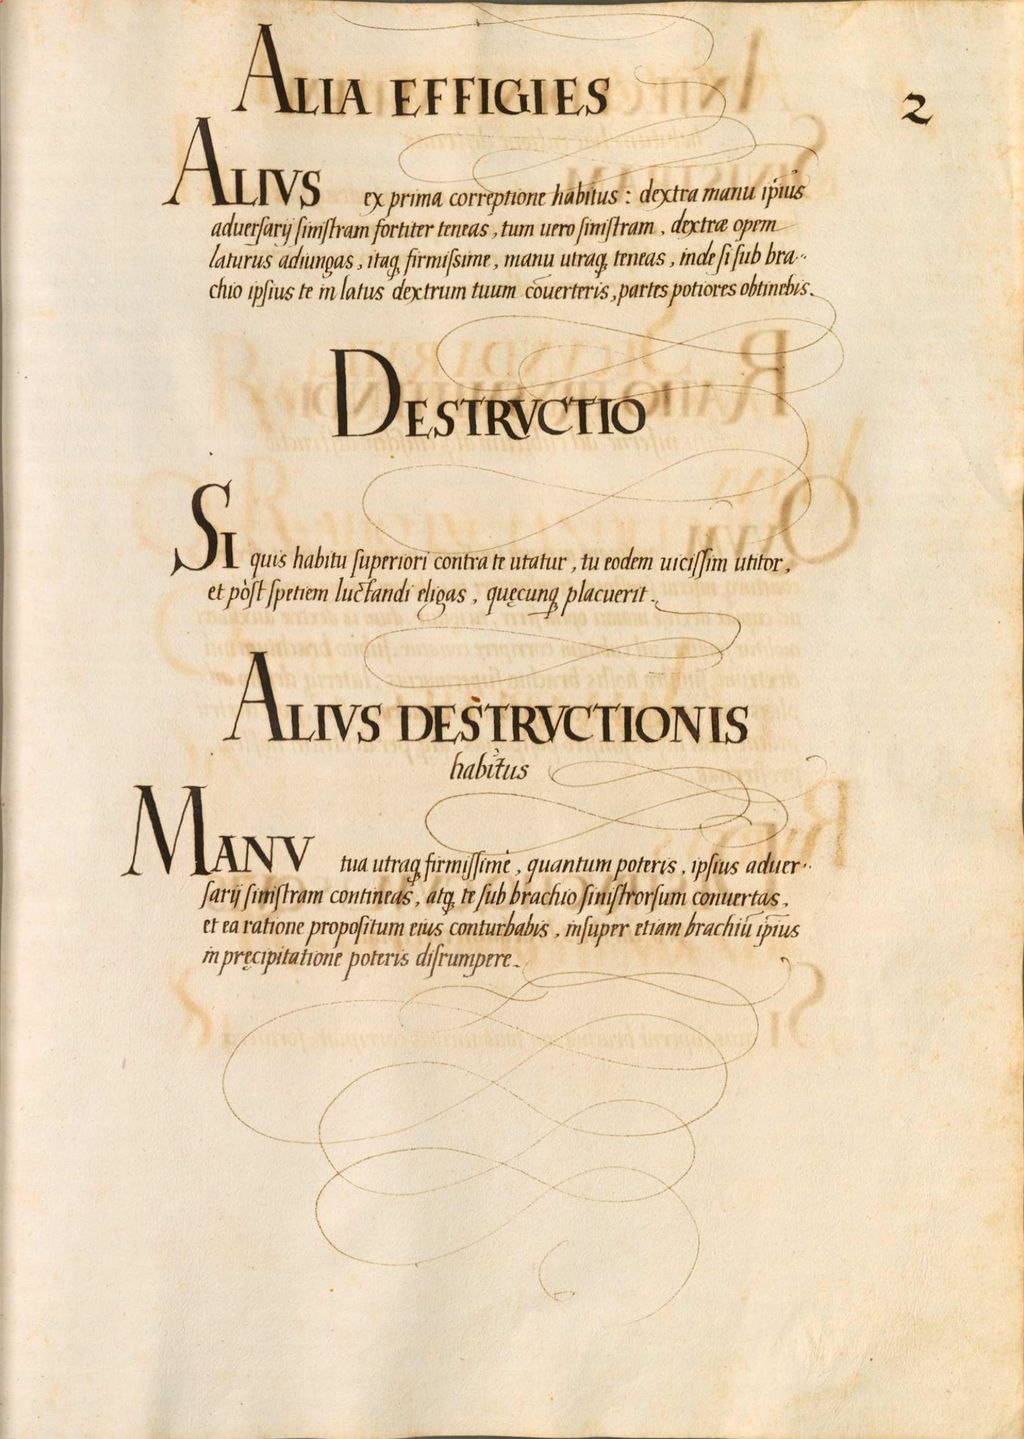 ALIA EFFIGIES
2
ALIVS ex prima correptione habitus : dextra manu ip̄ius
aduersarij sinistram fortiter teneas, tum uero sinistram, dextræ opem
laturus adiungas, itaq firmissime, manu utraq teneas, inde si sub bra-
chio ipsius te in latus dextrum tuum cōuerteris, partes potiores obtinebis.
DESTRVCTIO
SI quis habitu superiori contra te utatur, tu eodem uicissim utitor,
et pòst spetiem luctandi eligas, quęcunq placuerit.
ALIVS DESTRVCTIONIS
habitus
MANV tua utraq firmissime, quantum poteris, ipsius aduer-
sarij sinistram contineas, atq te sub brachio sinistrorsum conuertas,
et ea ratione propositum eius conturbabis, insuper etiam brachiū ip̄ius
in pręcipitatione poteris disrumpere.